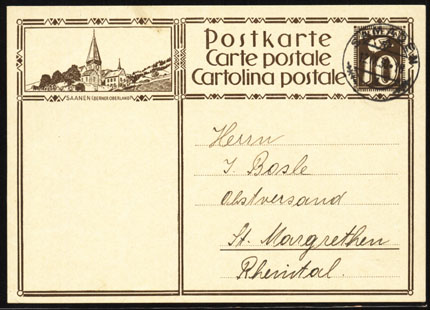 Postkarte
Carte postale
Cartolina postale
10
SAANEN (BERNER OBERLAND)
Herrn
J. Bosle
Obstversand
St. Margrethen
Rheintal.